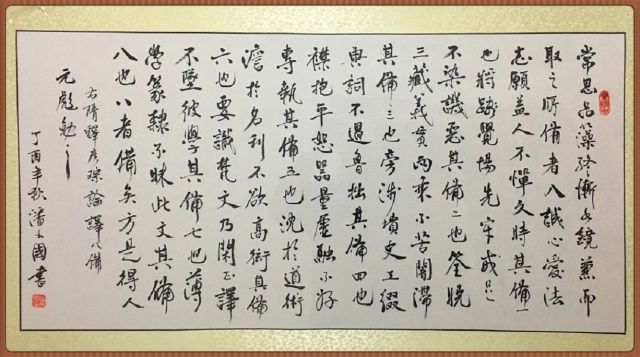 常思品藻終慚水鏡兼而
取之所備者八誠心愛法
志願益人不憚久時其備一
也將踐覺場先牢戒足
不染譏惡其備二也筌曉
三藏義貫兩乘不苦闇滯
其備三也旁涉墳史工綴
典詞不過魯拙其備四也
襟抱平恕器量虛融不好
專執其備五也沈於道術
澹於名利不欲高衒其備
六也要識梵文乃閑正譯
不墜彼學其備七也薄
學篆隸不昧此文其備
八也八者備矣方是得人
右隋釋彥琮論譯八備
元彪勉之
丁酉年秋潘文國書